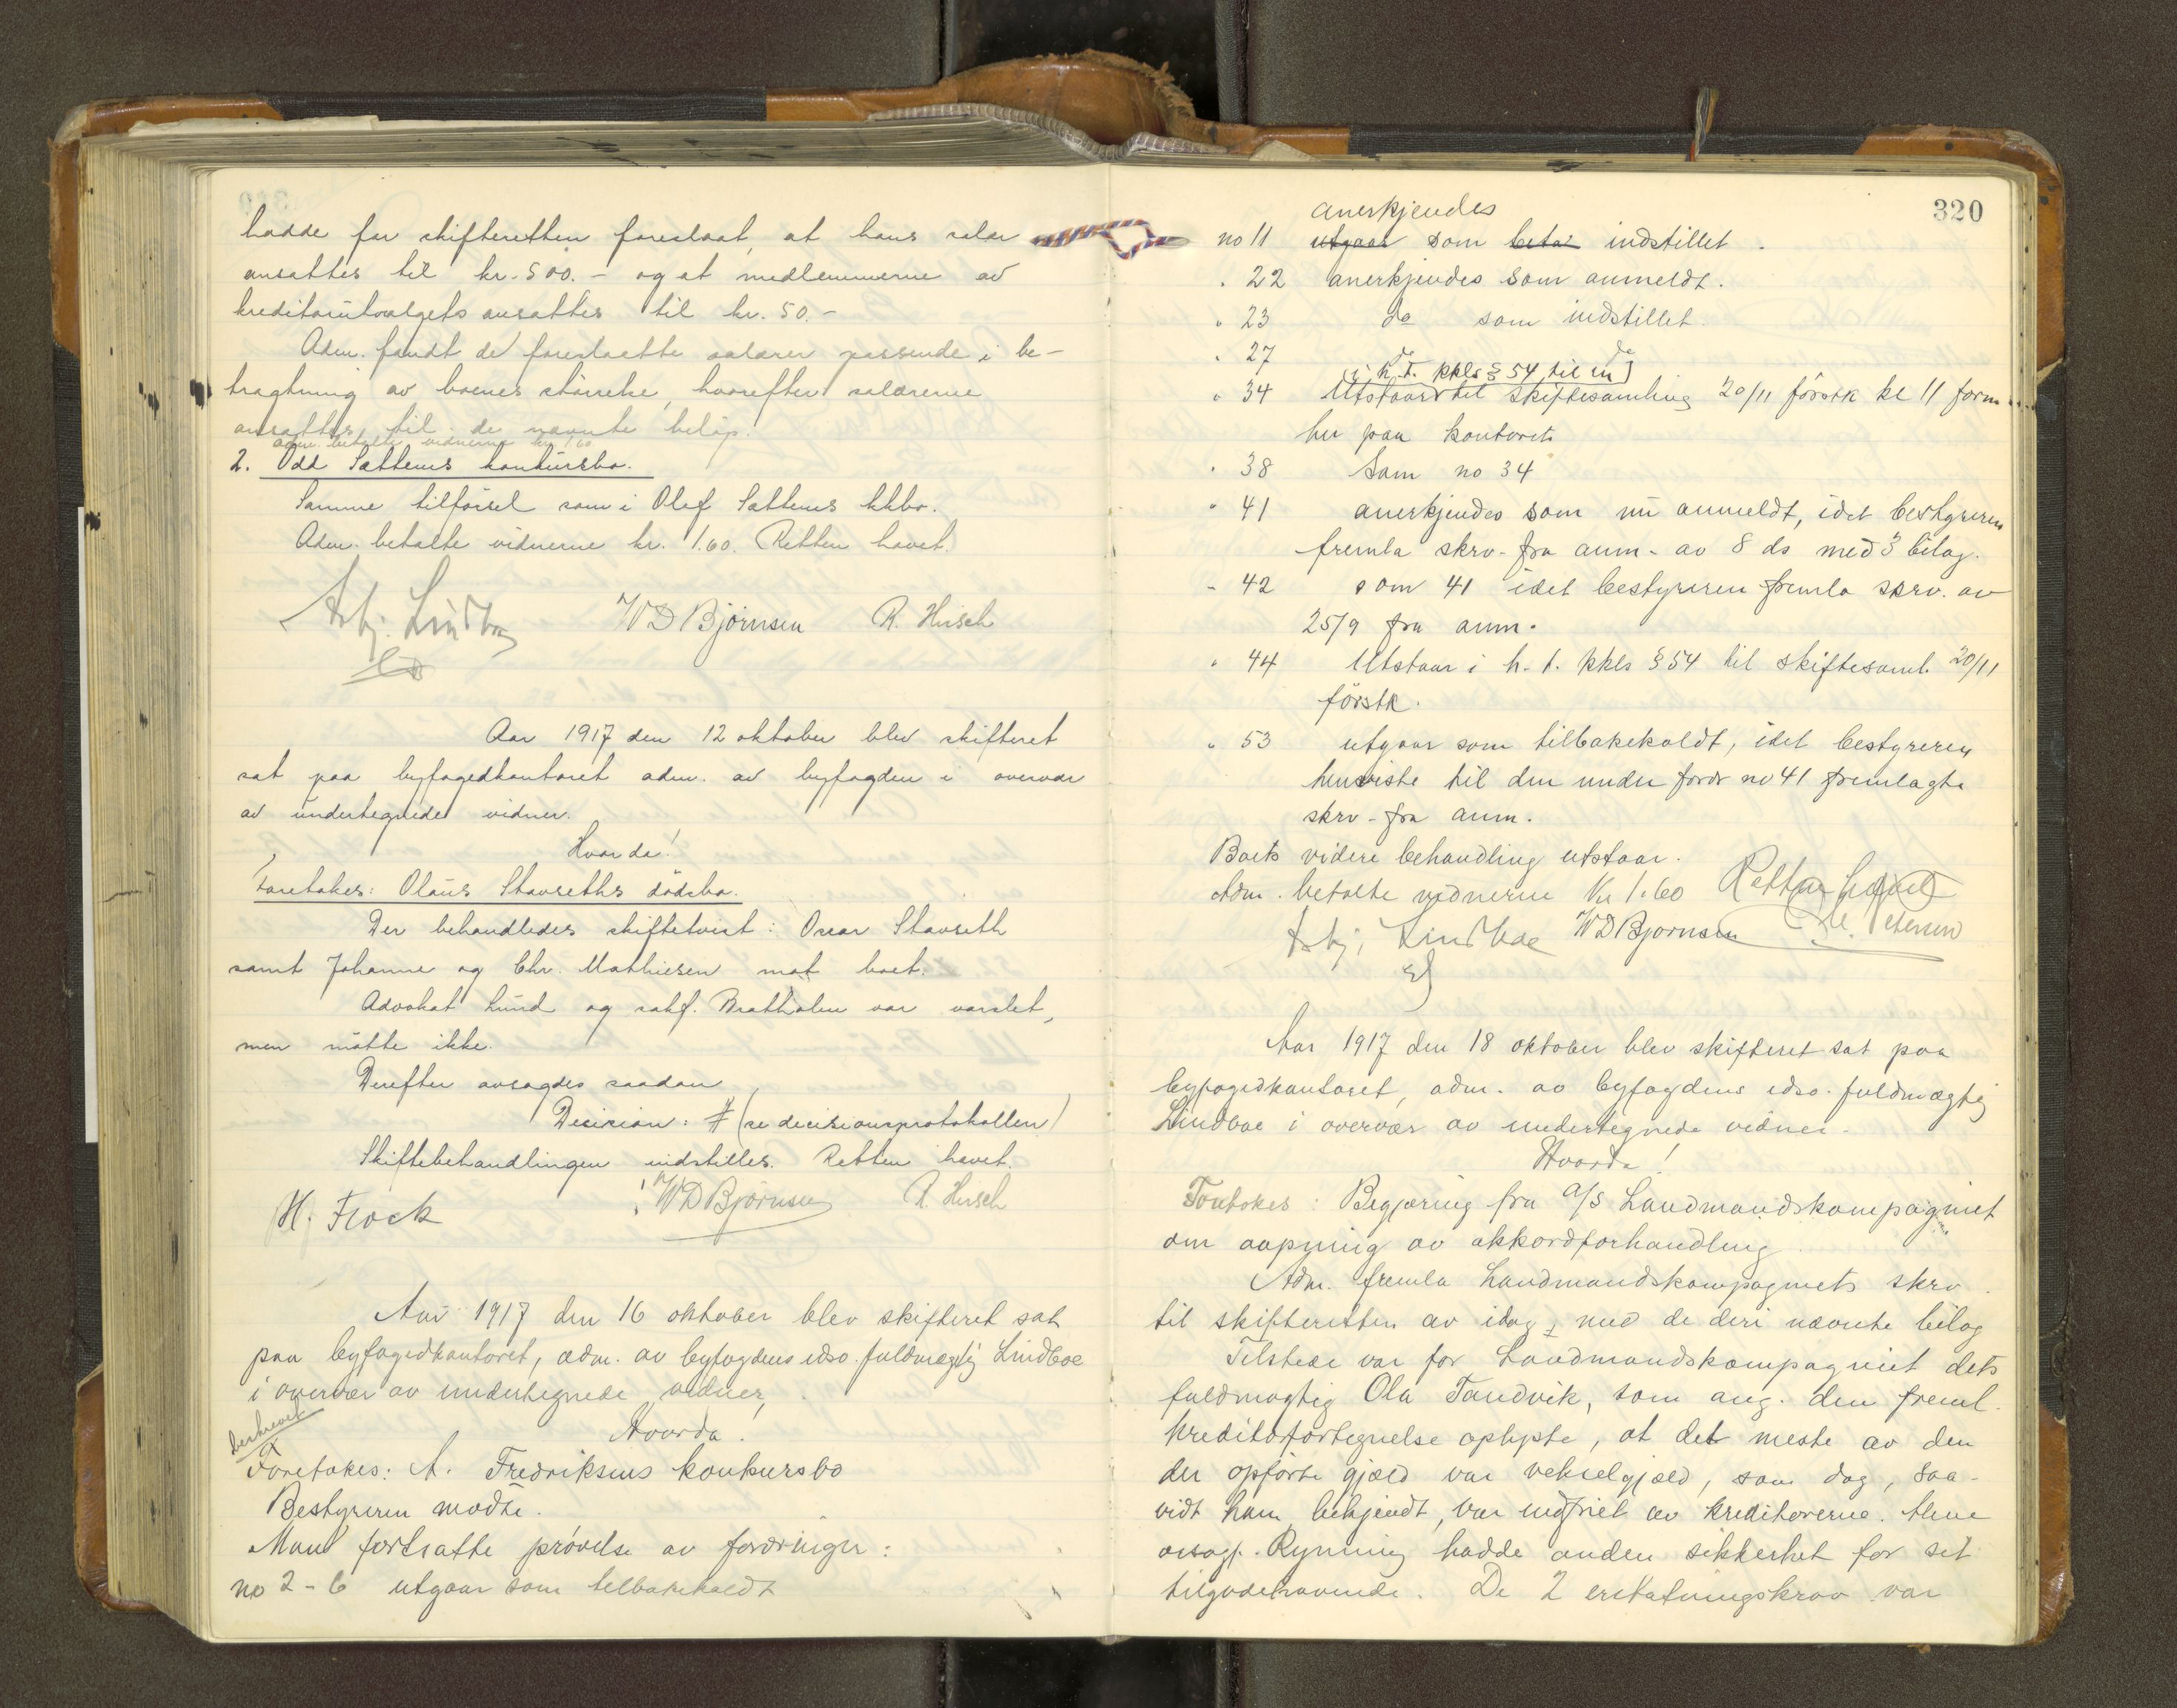 hadde for skifteretten foreslaat, at hans salær
ansattes til kr. 500.- og at medlemmerne av
kreditorutvalgets ansattes til kr. 50.-
Adm. fandt de foreslaatte salærer passende i be-
tragtning av boenes størrelse, hvorefter salærerne
ansattes til de nævnte beløp.
adm. betalte vidnerne kr. 1.60
2. Odd Sættems konkursbo.
Samme tilførsel som i Olaf Sættems kkbo.
Adm. betalte vidnerne kr. 1.60. Retten hævet.
Asbj. Lindboe W D Bjørnsen R. Hirsch
Aar 1917 den 12 oktober blev skifteret
sat paa byfogedkontoret adm. av byfogden i overvær
av undertegnede vidner.
Hvorda!
Foretokes: Olaus Stavseths dødsbo.
Der behandledes skiftetvist: Oscar Stavseth
samt Johanne og Chr. Mathiesen mot boet.
Advokat Lund og sakf. Bratholm var varslet,
men møtte ikke.
Derefter avsagdes saadan
Decision: # (se decisionsprotokollen)
Skiftebehandlingen indstilles. Retten hævet.
H. Flock W D Bjørnsen R. Hirsch
Aar 1917 den 16 oktober blev skifteret sat
paa byfogedkontoret, adm. av byfogdens edsv. fuldmægtig Lindboe
i overvær av undertegnede vidner,
Hvorda!
beskrevet
Foretokes: A. Fredriksens konkursbo
Bestyreren mødte.
Man fortsatte prøvelse av fordringer:
no 2-6 utgaar som tilbakekaldt
320
anerkjendes
no 11 utgaar som betal indstillet.
" 22 anerkjendes som anmeldt.
" 23 do som indstillet
" 27 do do
(i h.t. kkls § 54 til en)
" 34 Utstaar til skiftesamling 20/11 førstk kl 11 form
her paa kontoret
" 38 Som no 34
" 41 anerkjendes som nu anmeldt, idet bestyreren
fremla skrv. fra anm. av 8 ds med 3 bilag.
" 42 som 41 idet bestyreren fremla skrv. av
25/9 fra anm.
" 44 Utstaar i h.t. kkls § 54 til skiftesaml. 20/11
førstk.
" 53 utgaar som tilbakekaldt, idet bestyreren
henviste til den under fordr no 41 fremlagte
skrv. fra anm.
Boets videre behandling utstaar.
Adm. betalte vidnerne Kr 1.60 Retten hævet
Asbj. Lindboe W D Bjørnsen Petersen
Aar 1917 den 18 oktober blev skifteret sat paa
byfogedkontoret, adm. av byfogdens edsv. fuldmægtig
Lindboe i overvær av undertegnede vidner.
Hvorda!
Foretokes: Begjæring fra A/S Landmandskompagniet
om aapning av akkordforhandling
Adm. fremla Landmandskompagniets skrv.
til skifteretten av idag med de deri nævnte bilag
Tilstede var for Landmandskompagniet dets
fuldmægtig Ola Tandvik, som ang. den freml.
kreditorfortegnelse oplyste, at det meste av den
der opførte gjæld var vekselgjæld, som dog, saa-
vidt ham bekjendt, var indfriet av kreditorerne. Alene
oisagf. Ryning hadde anden sikkerhet for sit
tilgodehavende. De 2 erstatningskrav var